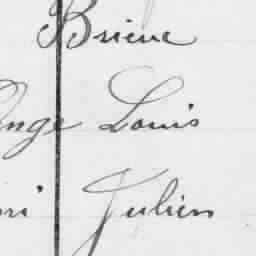 Brieuc
Ange Louis
ri Julien